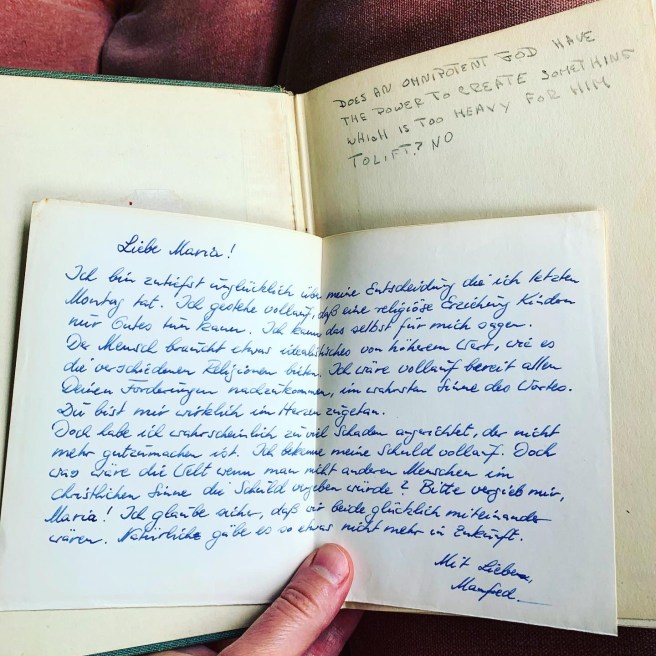 DOES AN OMNIPOTENT GOD HAVE
THE POWER TO CREATE SOMETHING
WHICH IS TOO HEAVY FOR HIM
TO LIFT? NO
Liebe Maria!
Ich bin zutiefst unglücklich über meine Entscheidung die ich letzten
Montag tat. Ich gestehe vollauf, daß eine religiöse Erziehung Kindern
nur Gutes tun kann. Ich kann das selbst für mich sagen.
Der Mensch braucht etwas idealistisches von höherem Wert, wie es
die verschiedenen Religionen bieten. Ich wäre vollauf bereit allen
Deinen Forderungen nachzukommen, im wahrsten Sinne des Wortes.
Du bist mir wirklich im Herzen zugetan.
Doch habe ich wahrscheinlich zu viel Schaden angerichtet, der nicht
mehr gutzumachen ist. Ich bekenne meine Schuld vollauf. Doch
was wäre die Welt wenn man nicht anderen Menschen im
christlichen Sinne die Schuld vergeben würde? Bitte vergieb mir,
Maria! Ich glaube sicher, daß wir beide glücklich miteinander
wären. Natürlich gäbe es so etwas nicht mehr in Zukunft.
Mit Liebe,
Manfred